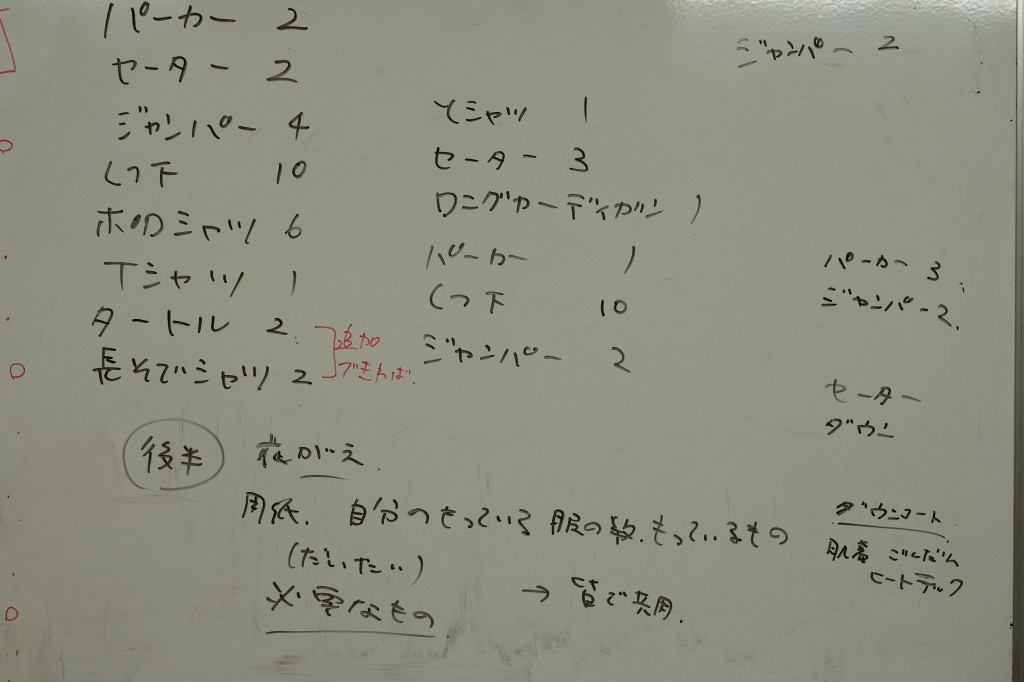 パーカー 2
セーター 2
ジャンパー 4
くつ下 10
ポロシャツ 6
Tシャツ 1
タートル 2
長そでシャツ 2
追加
できれば
Yシャツ 1
セーター 3
ロングカーディガン 1
パーカー 1
くつ下 10
ジャンパー 2
ジャンパー 2
パーカー 3
ジャンパー 2
セーター
ダウン
ダウンコート
肌着
ヒートテック
後半
用紙. 自分のもっている 服の数. もっているもの
(だいたい)
必要なもの → 皆で共用.